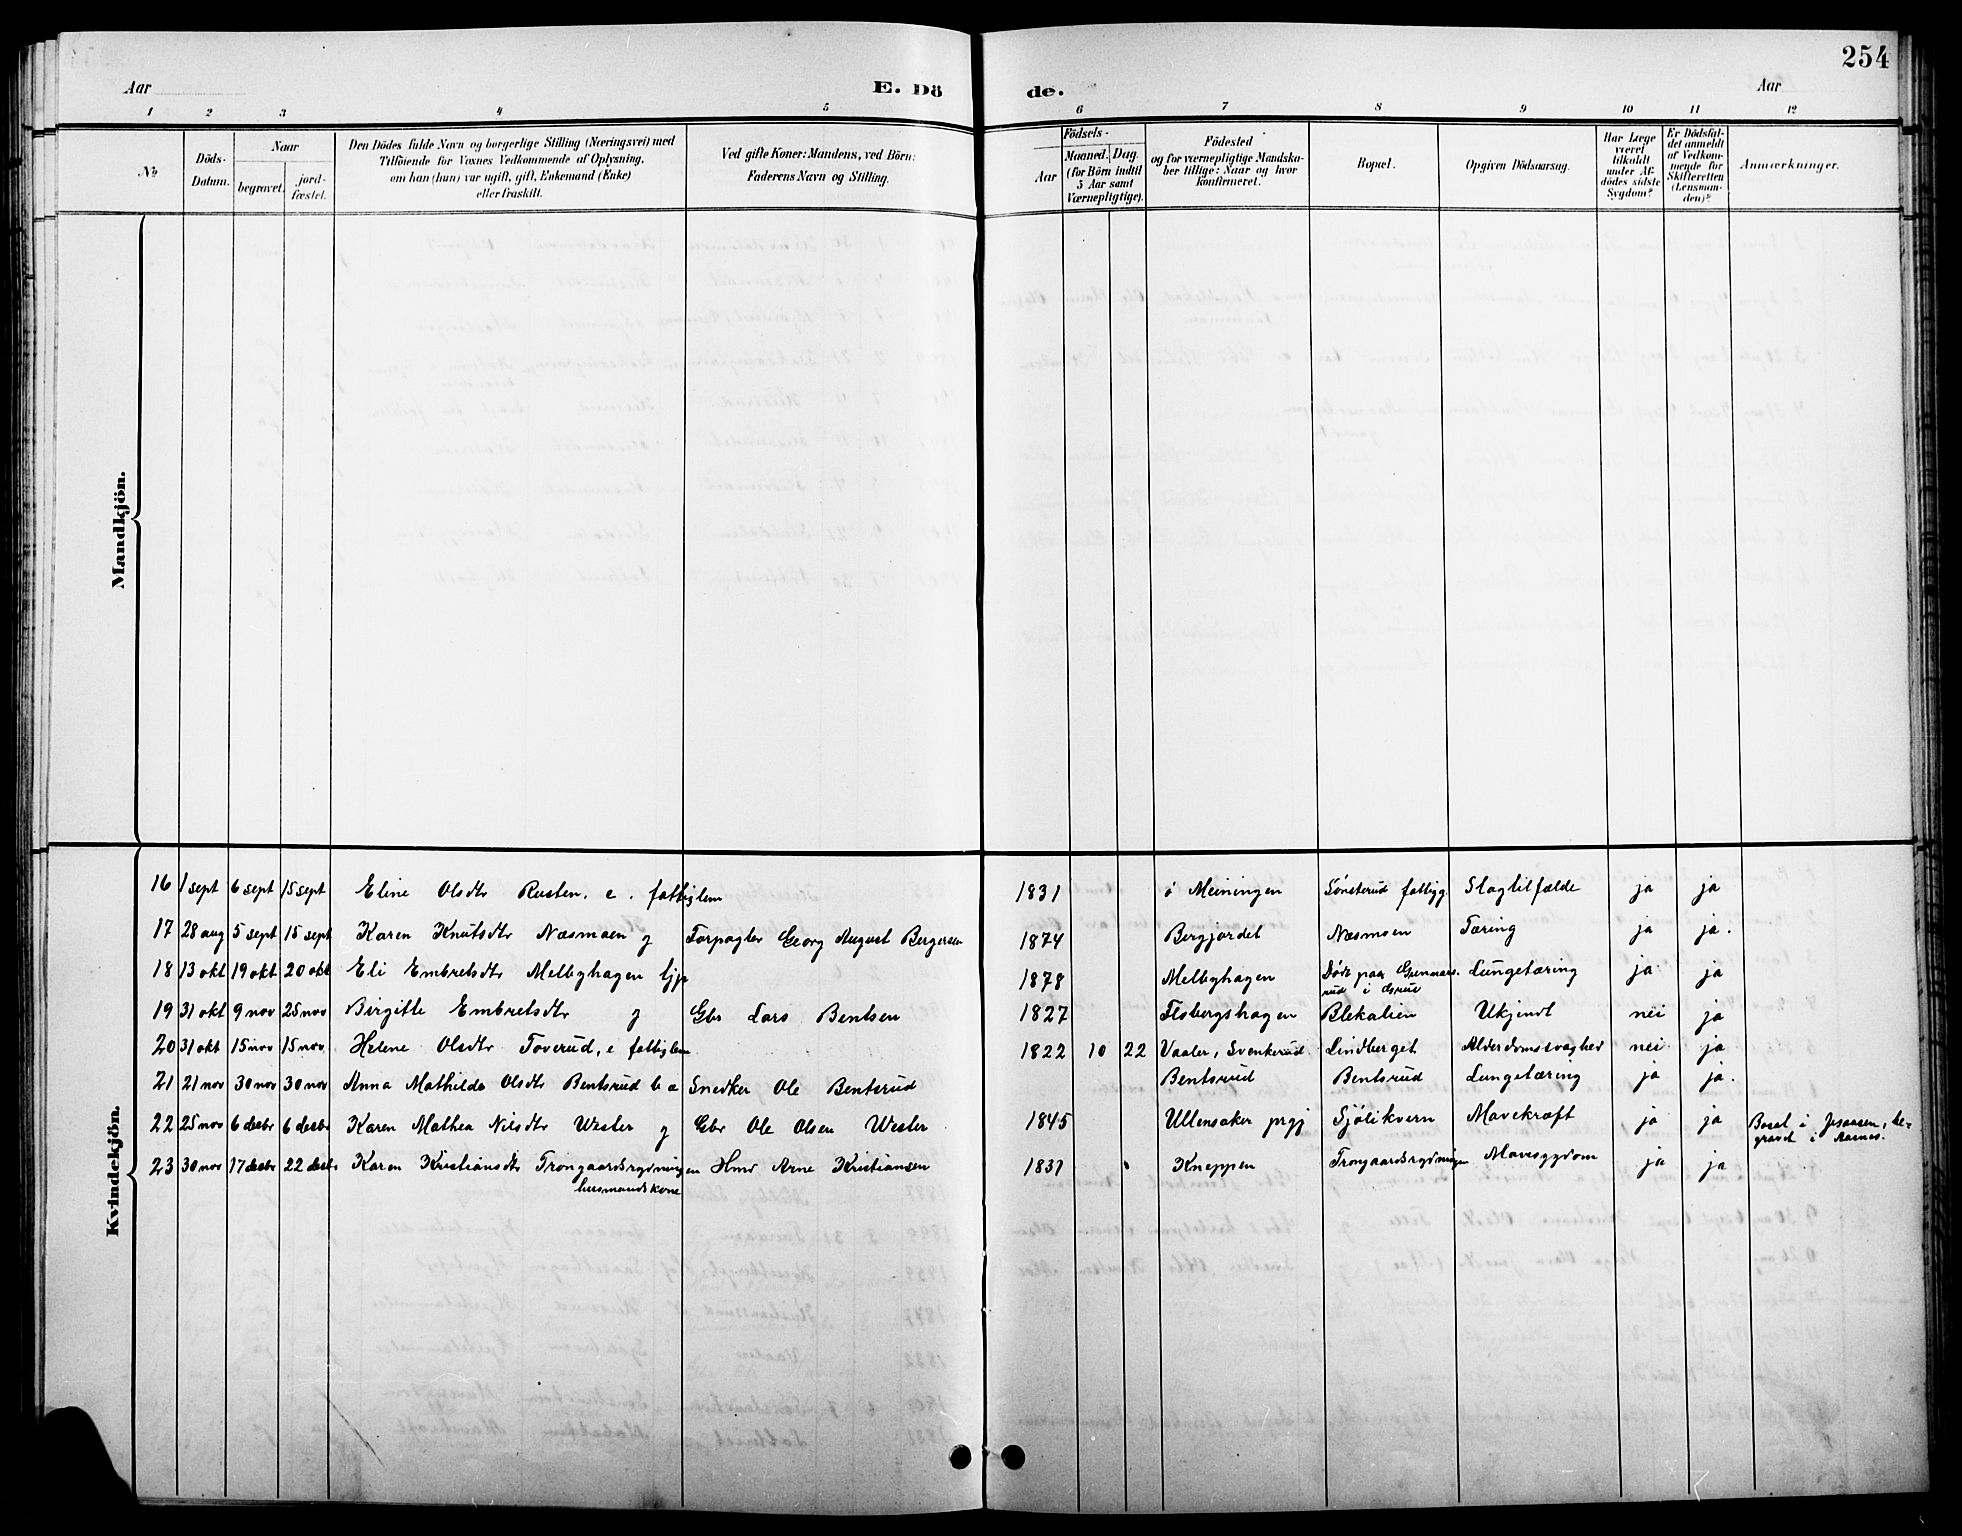 254
Aar
E. Dö
de.
Aar
1 2 3 4 5 6 7 8 9 10 11 12
No
Döds-
Datum.
Naar
begravet.
jord-
fæstet.
Den Dödes fulde Navn og borgerlige Stilling (Næringsvei) med
Tilföiende for Voxnes Vedkommende af Oplysning,
om han (hun) var ugift, gift, Enkemand (Enke)
eller fraskilt.
Ved gifte Koner: Mandens, ved Börn:
Faderens Navn og Stilling.
Födsels-
Aar
Maaned.
Dag.
(for Börn indtil
5 Aar samt
Værnepligtige).
Födested
og for værnepligtige Mandska-
ber tillige: Naar og hvor
konfirmeret.
Bopæl.
Opgiven Dödsaarsag.
Har Læge
været
tilkaldt
under Af-
dödes sidste
Sygdom?
Er Dödsfal-
det anmeldt
af Vedkom-
mende for
Skifteretten
(Lensman-
den)?
Anmærkninger.
Mandkjön.
Kvindekjön.
16 1 sept 6 sept 15 sept Eline Olsdtr Rusten, e. fattiglem 1831 Meiningen Sönsterud fattigg. Slagtilfælde ja ja
17 28 aug 5 sept 15 sept Karen Knutsdtr Næsmoen g Forpagter Georg August Bergersen 1874 Bergjordet Næsmoen Tæring ja ja.
18 13 okt 19 okt 20 okt Eli Embretsdtr Melbyhagen tjp 1878 Melbyhagen Död paa Gunnars-
rud i Grue Lungetæring ja ja
19 31 okt 9 nov 25 nov Birgitte Embretsdtr g Gbr Lars Bentsen 1827 Flisbergshagen Blekalien Ukjendt nei ja
20 31 okt 15 nov 15 nov Helene Olsdtr Toverud, e fattiglem 1822 10 22 Vaaler, Svenkerud Lindberget Alderdomssvaghed nei ja
21 21 nov 30 nov 30 nov Anna Mathilde Olsdtr Bentsrud Snedker Ole Bentsrud Bentsrud Bentsrud Lungetæring ja ja.
22 25 nov 6 desbr 6 desbr Karen Mathea Nilsdtr Wester g Gbr Ole Olsen Wester 1845 Ullensaker prgj Sjölikvern Mavekræft ja ja Bosat i be-
gravet i Aasnes.
23 30 nov 17 desbr 22 desbr Karen Kristiansdtr Trongaardsrydningen Hmd Arne Kristiansen 1831 Kneppen Trongaardsrydningen Mavesygdom ja ja
husmandskone